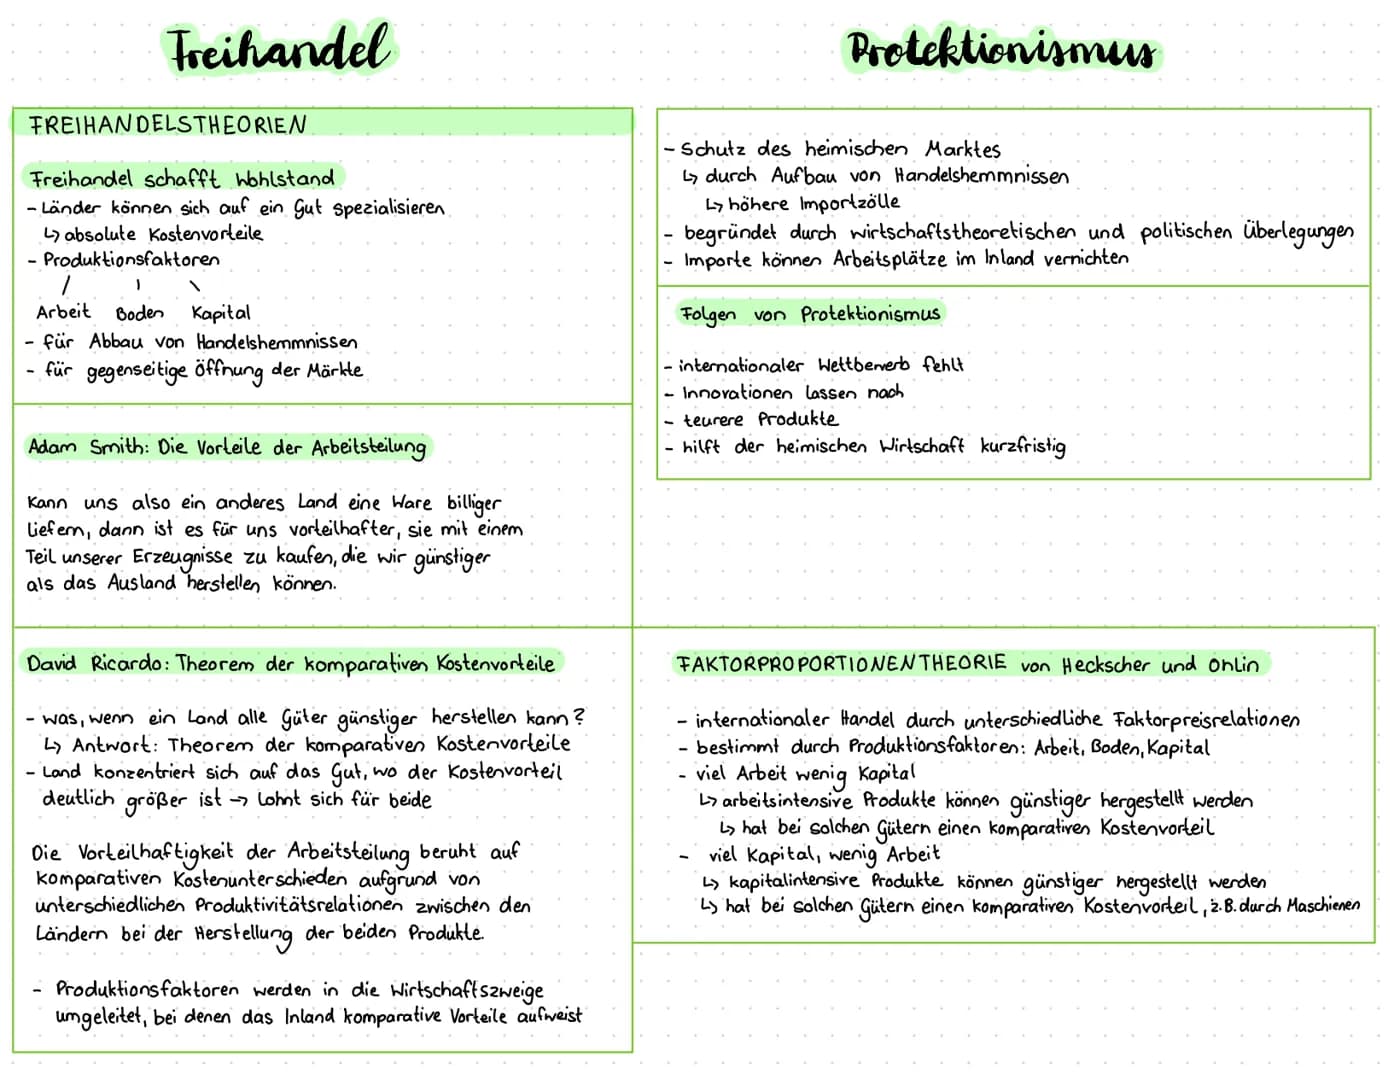 Freihandel
FREIHANDELSTHEORIEN
Freihandel schafft Wohlstand
- Länder können sich auf ein Gut spezialisieren
↳ absolute Kostenvorteile
- Produktionsfaktoren
Arbeit Boden Kapital
- für Abbau von Handelshemmnissen
- für gegenseitige Öffnung der Märkte
Adam Smith: Die Vorteile der Arbeitsteilung
Kann uns also ein anderes Land eine Ware billiger
liefern, dann ist es für uns vorteilhafter, sie mit einem
Teil unserer Erzeugnisse zu kaufen, die wir günstiger
als das Ausland herstellen können.
David Ricardo: Theorem der komparativen Kostenvorteile
- was, wenn ein Land alle Güter günstiger herstellen kann?
↳ Antwort: Theorem der komparativen Kostenvorteile
- Land konzentriert sich auf das Gut, wo der Kostenvorteil
deutlich größer ist → lohnt sich für beide
Die Vorteilhaftigkeit der Arbeitsteilung beruht auf
komparativen Kostenunterschieden aufgrund von
unterschiedlichen Produktivitätsrelationen zwischen den
Ländern bei der Herstellung der beiden Produkte.
- Produktionsfaktoren werden in die Wirtschaftszweige
umgeleitet, bei denen das Inland komparative Vorteile aufweist
Protektionismus
- Schutz des heimischen Marktes
↳ durch Aufbau von Handelshemmnissen
↳ höhere Importzölle
- begründet durch wirtschaftstheoretischen und politischen Überlegungen
- Importe können Arbeitsplätze im Inland vernichten
Folgen von Protektionismus
- internationaler Wettbewerb fehlt
- Innovationen lassen nach
- teurere Produkte
- hilft der heimischen Wirtschaft kurzfristig
FAKTORPROPORTIONENTHEORIE von Heckscher und Ohlin
- internationaler Handel durch unterschiedliche Faktorpreisrelationen
- bestimmt durch Produktionsfaktoren: Arbeit, Boden, Kapital
- viel Arbeit wenig Kapital
↳ arbeitsintensive Produkte können günstiger hergestellt werden
↳ hat bei solchen Gütern einen komparativen Kostenvorteil
- viel Kapital, wenig Arbeit
↳ kapitalintensive Produkte können günstiger hergestellt werden
↳ hat bei solchen Gütern einen komparativen Kostenvorteil, z.B. durch Maschienen